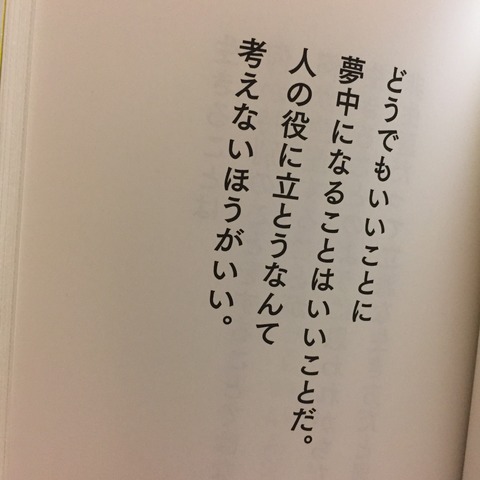 どうでもいいことに
夢中になることはいいことだ。
人の役に立とうなんて
考えないほうがいい。